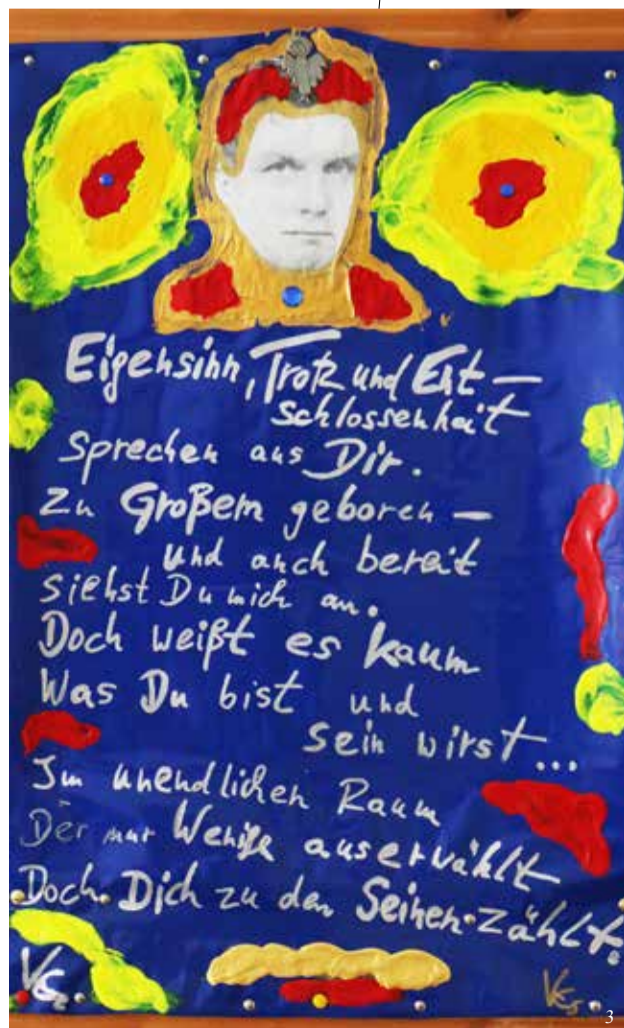 Eigensinn, Trotz und Ent-
schlossenheit
Sprechen aus Dir.
Zu Großem geboren -
und auch bereit
siehst Du mich an.
Doch weißt es kaum
Was Du bist und
sein wirst...
Im unendlichen Raum
Der nur Wenige auserwählt
Doch Dich zu den Seinen zählt.
3